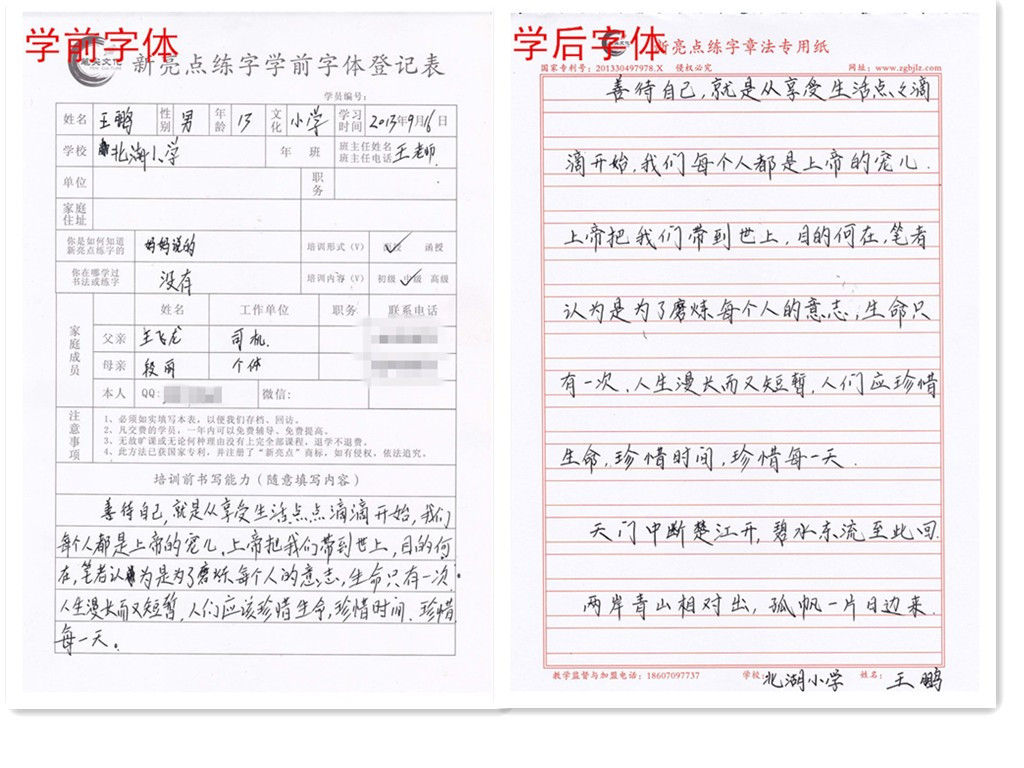 学前字体
意尖文化
新亮点练字学前字体登记表
学员编号：
姓名 王鹏 性别 男 年龄 13 文化 小学 学习时间 2013年9月16日
学校 北湖小学 年 班 班主任姓名 班主任电话 王老师
单位 职务
家庭住址
你是如何知道新亮点练字的 妈妈说的 培训形式（V） 面授 函授
你在哪学过书法或练字 没有 培训内容（V） 初级 中级 高级
家庭成员 姓名 工作单位 职务 联系电话
父亲 王飞龙 司机.
母亲 段丽 个体
本人 QQ: 微信:
注意事项
1、必须如实填写本表，以便我们存档、回访。
2、凡交费的学员，一年内可以免费辅导、免费提高。
3、无故旷课或无论何种理由没有上完全部课程，退学不退费。
4、此方法已获国家专利，并注册了“新亮点”商标，如有侵权，依法追究。
培训前书写能力（随意填写内容）
善待自己，就是从享受生活点点滴滴开始，我们
每个人都是上帝的宠儿.上帝把我们带到世上，目的何
在，笔者认为是为了磨炼每个人的意志，生命只有一次.
人生漫长而又短暂，人们应该珍惜生命，珍惜时间.珍惜
每一天。
学后字体
新亮点练字章法专用纸
国家专利号：201330497978.X 侵权必究 网址：www.zgbjlz.com
善待自己，就是从享受生活点々滴
滴开始，我们每个人都是上帝的宠儿.
上帝把我们带到世上，目的何在，笔者
认为是为了磨炼每个人的意志，生命只
有一次.人生漫长而又短暂，人们应珍惜
生命，珍惜时间，珍惜每一天.
天门中断楚江开，碧水东流至此回.
两岸青山相对出，孤帆一片日边来.
教学监督与加盟电话：18607097737 学校：北湖小学 姓名：王鹏